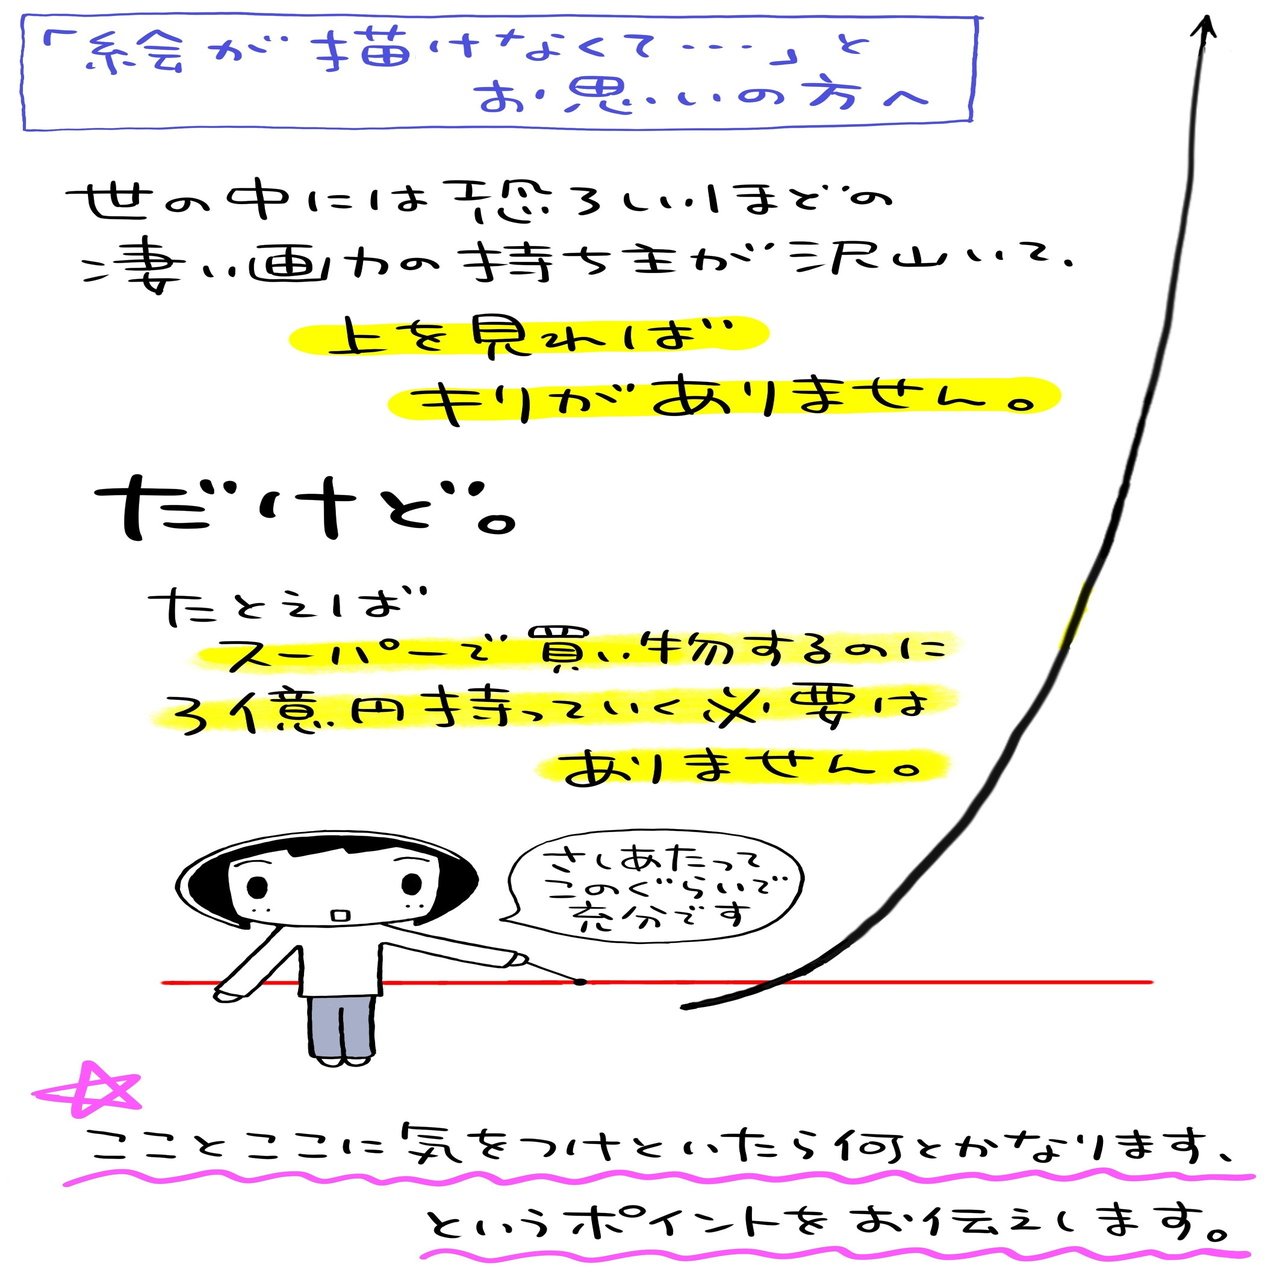 「絵が描けなくて…」と
お思いの方へ
世の中には恐ろしいほどの
凄い画力の持ち主が沢山いて、
上を見れば
キリがありません。
だけど。
たとえば
スーパーで買い物するのに
3億円持っていく必要は
ありません。
さしあたって
このぐらいで
充分です
こことここに気をつけといたら何とかなります、
というポイントをお伝えします。